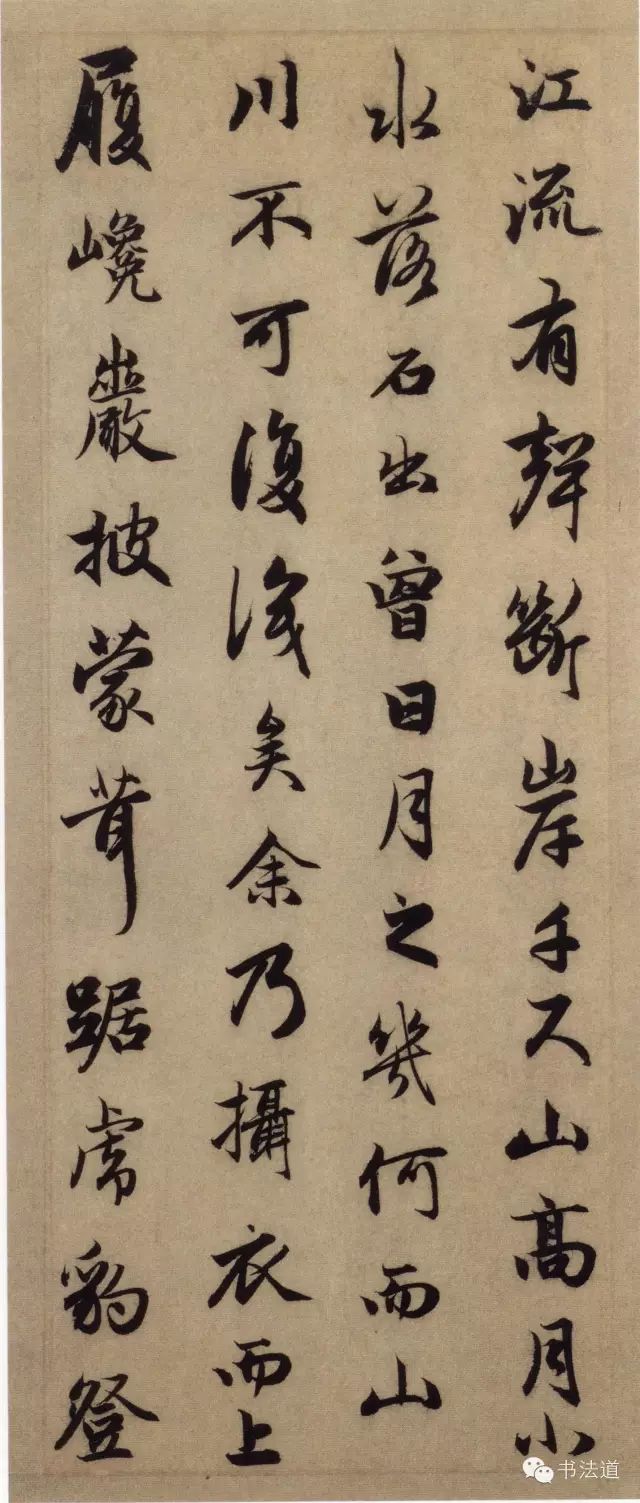 江流有聲斷岸千尺山髙月小
水落石出曾日月之幾何而山
川不可復識矣余乃攝衣而上
履巉巖披蒙茸踞虎豹登
书法道